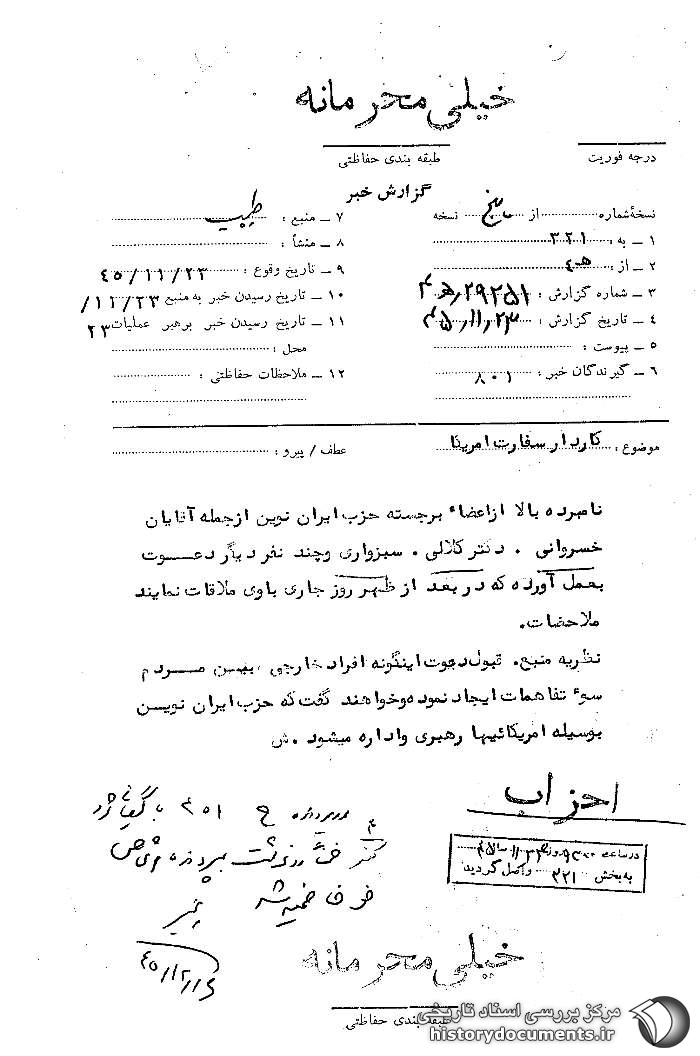 خیلی محرمانه
درجه فوریت
طبقه بندی حفاظتی
گزارش خبر
نسخهٔ شماره از پنج نسخه
۱ ـ به : ۳۲۱
۲ ـ از : ۴ه
۳ ـ شماره گزارش : ۲۹۲۵۱/ه۴
۴ ـ تاریخ گزارش : ۴۵/۱۱/۲۳
۵ ـ پیوست :
۶ ـ گیرندگان خبر : ۸۰۱
۷ ـ منبع : طبیب
۸ ـ منشأ :
۹ ـ تاریخ وقوع : ۴۵/۱۱/۲۳
۱۰ ـ تاریخ رسیدن خبر به منبع ۱۱/۲۳/
۱۱ ـ تاریخ رسیدن خبر برهبر عملیات ۲۳
محل :
۱۲ ـ ملاحظات حفاظتی :
موضوع : کاردار سفارت امریکا
عطف / پیرو :
نامبرده بالا ازاعضاء برجسته حزب ایران نوین ازجمله آقایان
خسروانی . دکتر کلالی . سبزواری وچند نفر دیگر دعوت
بعمل آورده که در بعد از ظهر روز جاری باوی ملاقات نمایند
ملاحضات.
نظریه منبع. قبول دعوت اینگونه افراد خارجی ، بین مردم
سوء تفاهمات ایجاد نموده وخواهند گفت که حزب ایران نوین
بوسیله امریکائیها رهبری واداره میشود .ش
احزاب
در ساعت روز ۴۵/۱۱/
به بخش ۳۲۱ واصل گردید
در پرونده ح ۳۰۱
ضمیمه شد
۴۵/۱۲/
خیلی محرمانه
طبقه بندی حفاظتی
مرکز بررسی اسناد تاریخی
historydocuments.ir